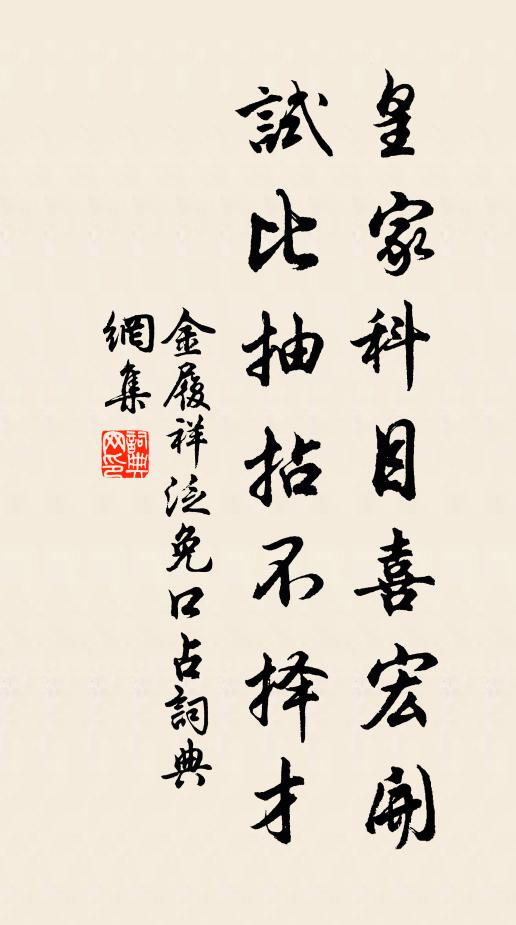 皇家科目喜宏開
試比抽拈不择才
金履祥泛免口占詞典
網集
詞典
网印